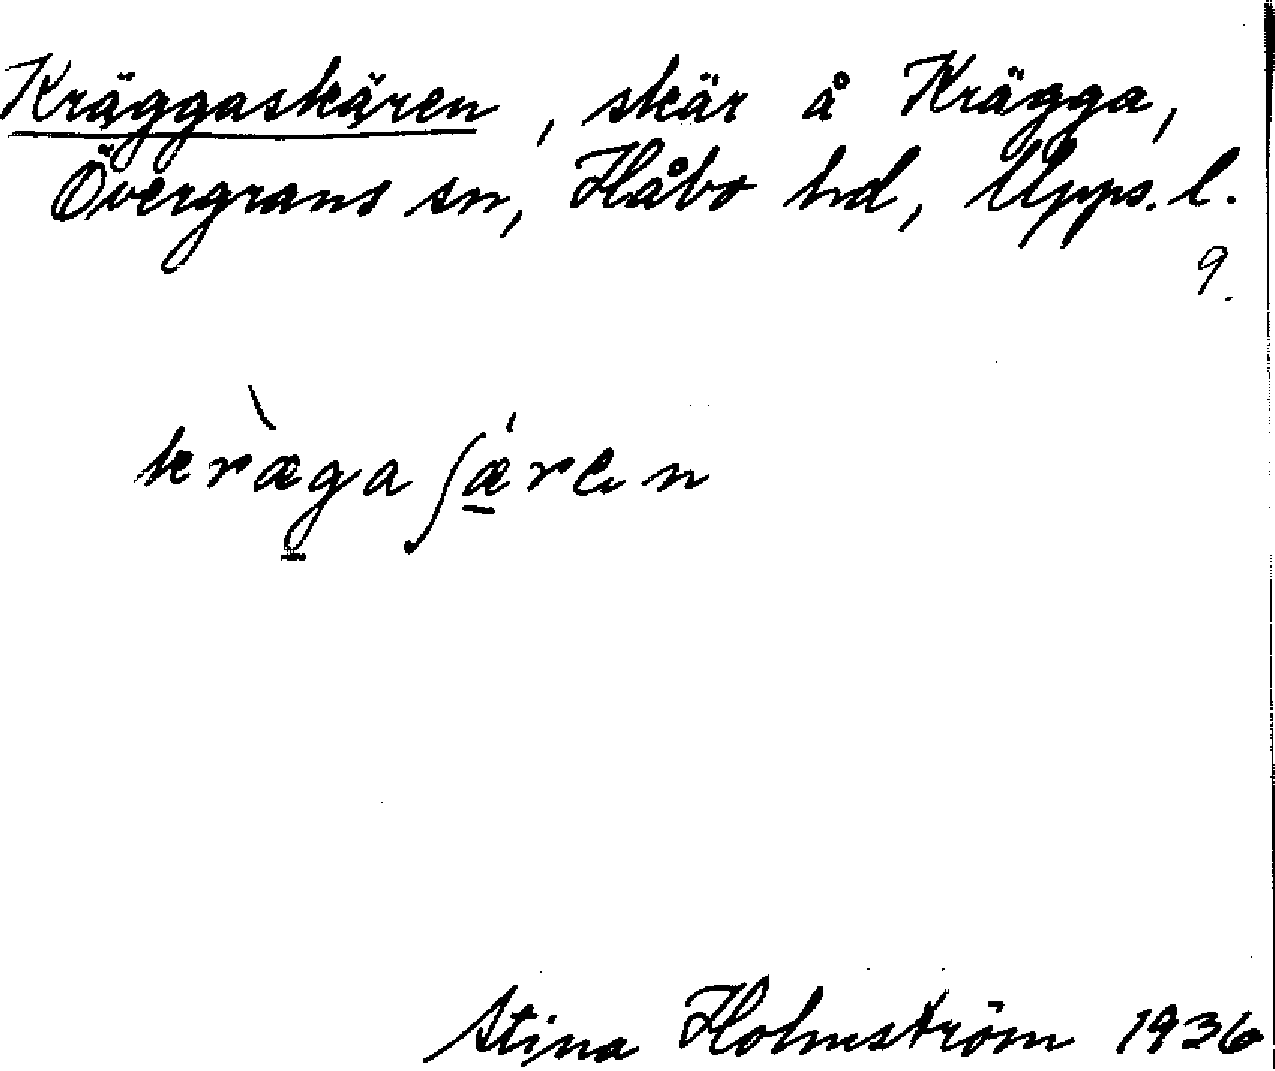 Kräggaskären, skär å Krägga,
Övergrans sn, Håbo hd, Upps. l.
9.
kræ̀gaʃǽ̠ren
Stina Holmström 1936